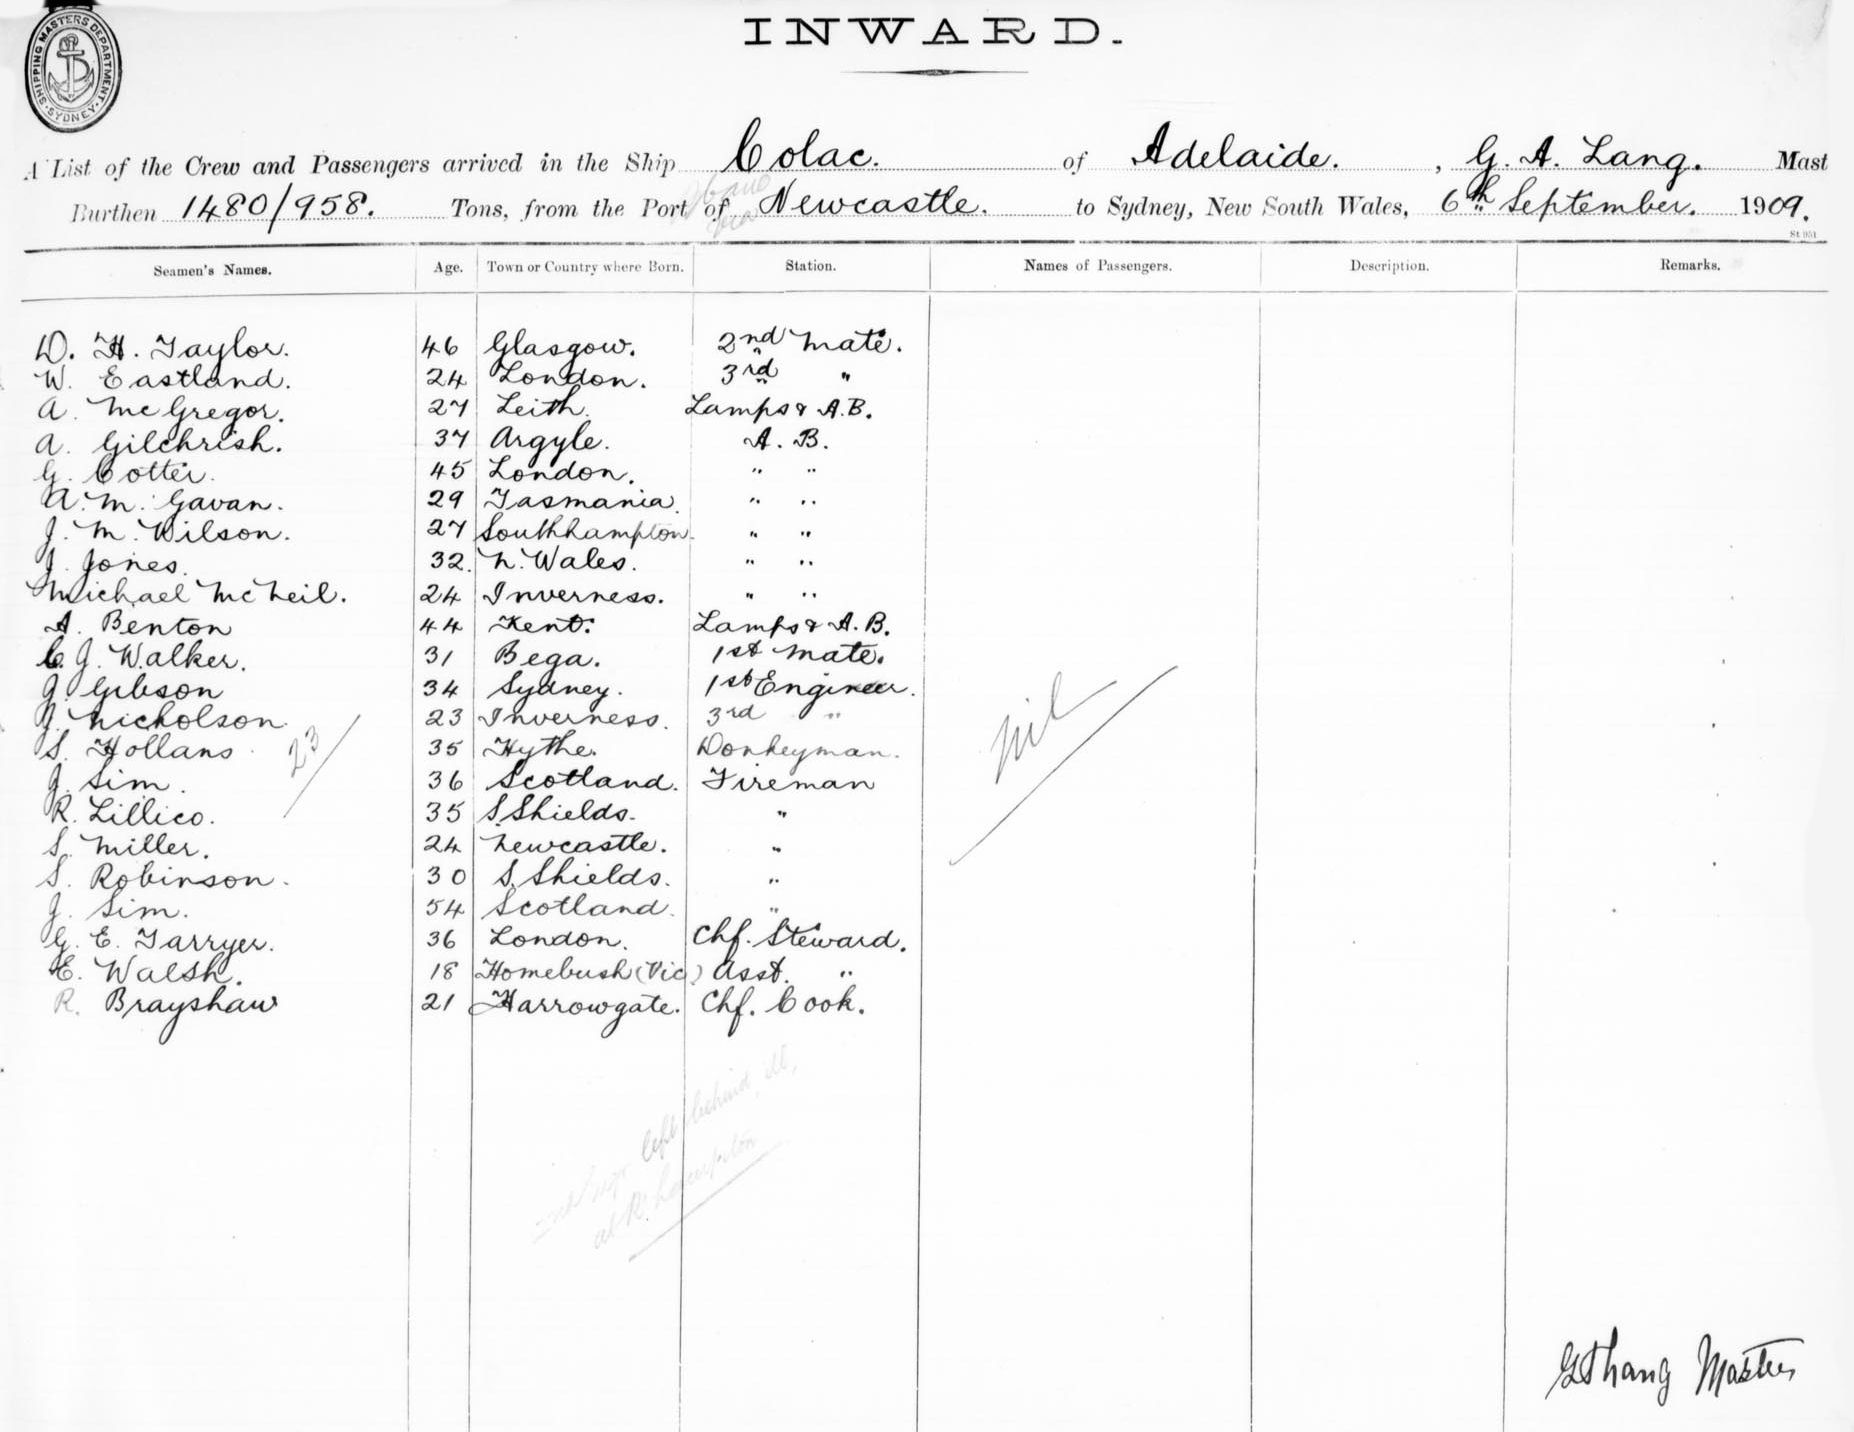 SHIPPING MASTERS DEPARTMENT · SYDNEY ·
INWARD.
A List of the Crew and Passengers arrived in the Ship Colac. of Adelaide. , G. A. Lang. Mast
Burthen 1480/958. Tons, from the Port of Newcastle. to Sydney, New South Wales, 6th September. 1909.
St 951
Seamen's Names. Age. Town or Country where Born. Station. Names of Passengers. Description. Remarks.
D. H. Taylor. 46 Glasgow. 2nd Mate.
W. Eastland. 24 London. 3rd "
A. McGregor. 27 Leith. Lamps & A.B.
A. Gilchrish. 37 Argyle. A. B.
G. Cotter. 45 London. " "
A. M. Gavan. 29 Tasmania. " "
J. M. Wilson. 27 Southhampton. " "
J. Jones. 32. N. Wales. " "
Michael McNeil. 24 Inverness. " "
A. Benton 44 Kent. Lamps & A. B.
C. J. Walker. 31 Bega. 1st Mate.
J. Gibson 34 Sydney. 1st Engineer.
J. Nicholson. 23 Inverness. 3rd "
S. Hollans 35 Hythe. Donkeyman.
23
nil
J. Sim. 36 Scotland. Fireman
R. Lillico. 35 S. Shields. "
S. Miller. 24 Newcastle. "
S. Robinson. 30 S. Shields. "
J. Sim. 54 Scotland. "
G. E. Tarryer. 36 London. Chf. Steward.
E. Walsh. 18 Homebush (Vic) Asst. "
R. Brayshaw 21 Harrowgate. Chf. Cook.
left behind, ill,
at
G A Lang Master